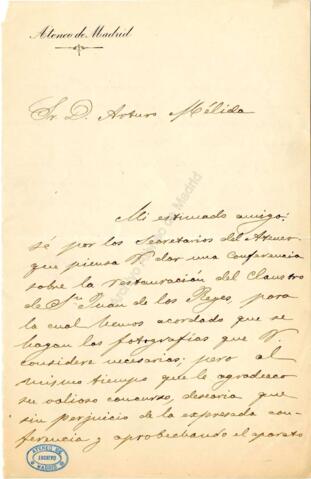 Ateneo de Madrid
Sr. D. Arturo Mélida
Mi estimado amigo:
sé por los Secretarios del Ateneo
que piensa V. dar una conferencia
sobre la restauración del Claustro
de Sn. Juan de los Reyes, para
la cual hemos acordado que se
hagan las fotografías que V.
considere necesarias; pero al
mismo tiempo que le agradezco
su valioso concurso, desearia que
sin perjuicio de la expresada con-
ferencia y aprobechando el aparato
ATENEO DE
MADRID